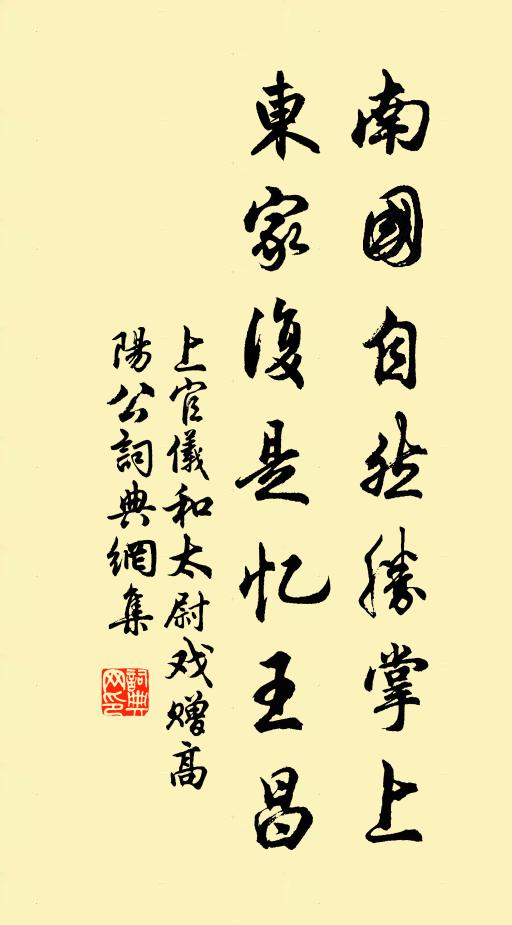 南國自然勝掌上
東家復是忆王昌
上官儀和太尉戏赠高
陽公詞典網集
詞典网印